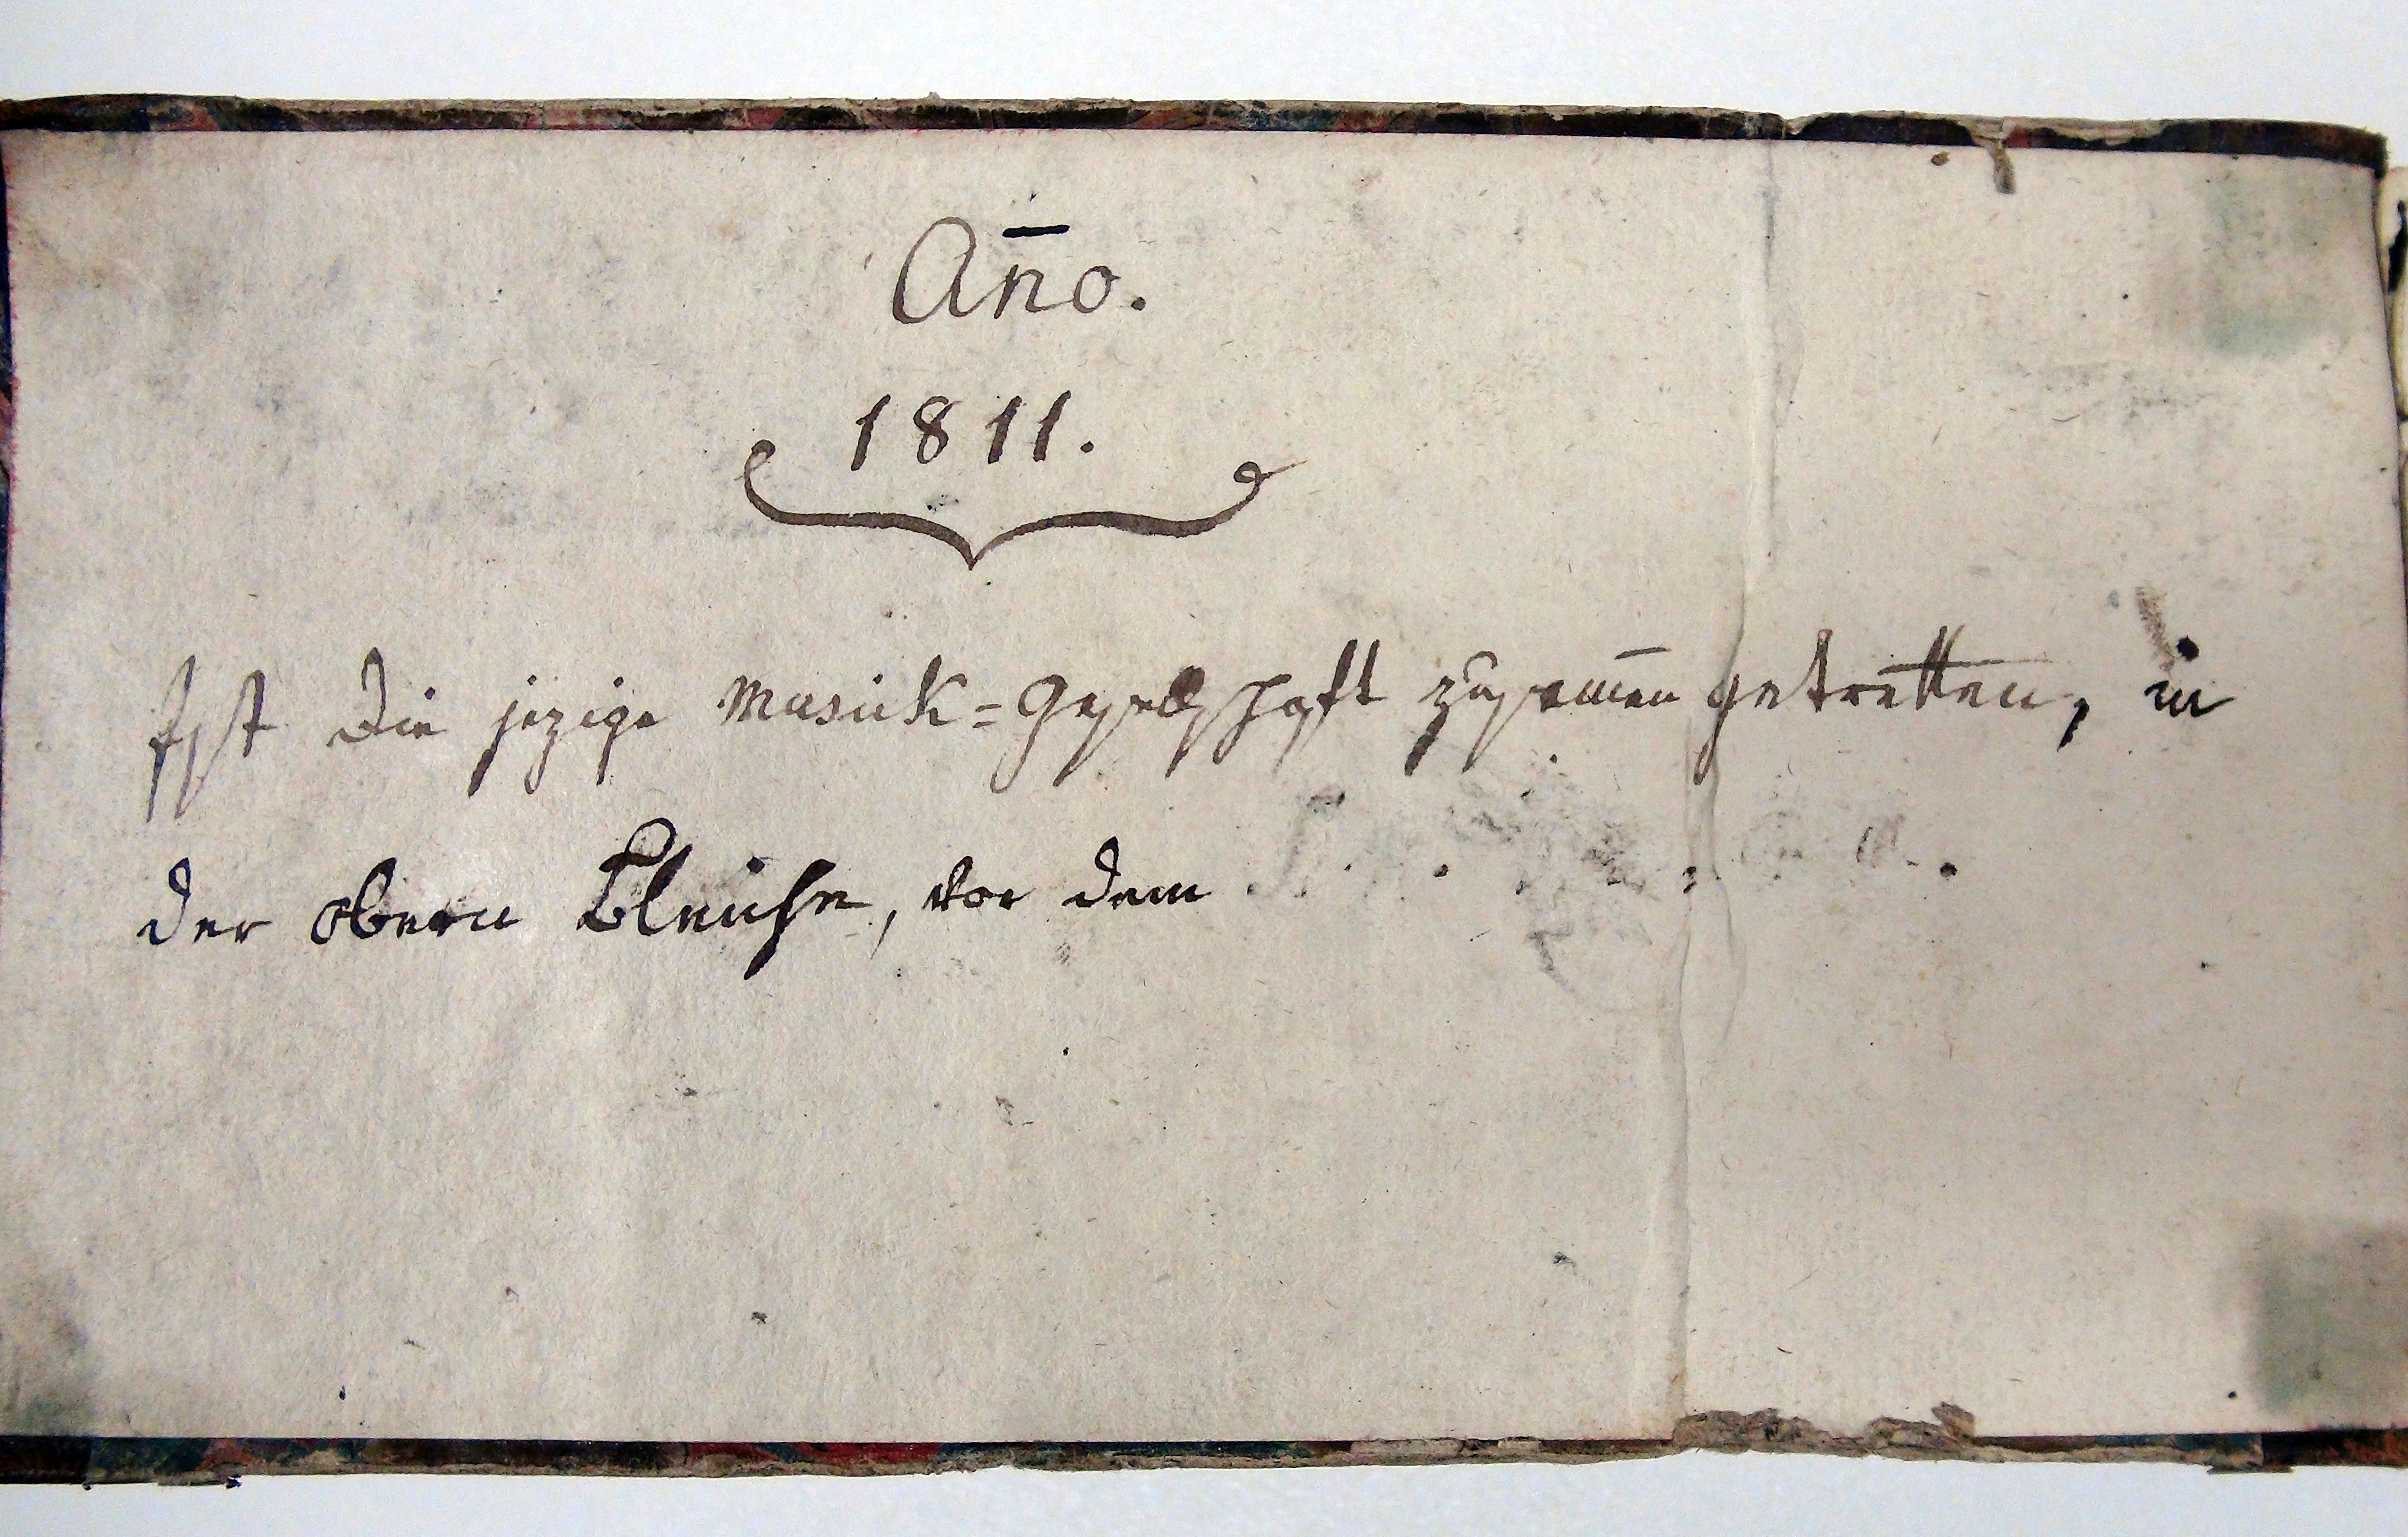 Ano̅.
1811.
Ist die jezige Musick=Gesellschaft zusam̅en getretten, in
der obern Bleiche, vor dem